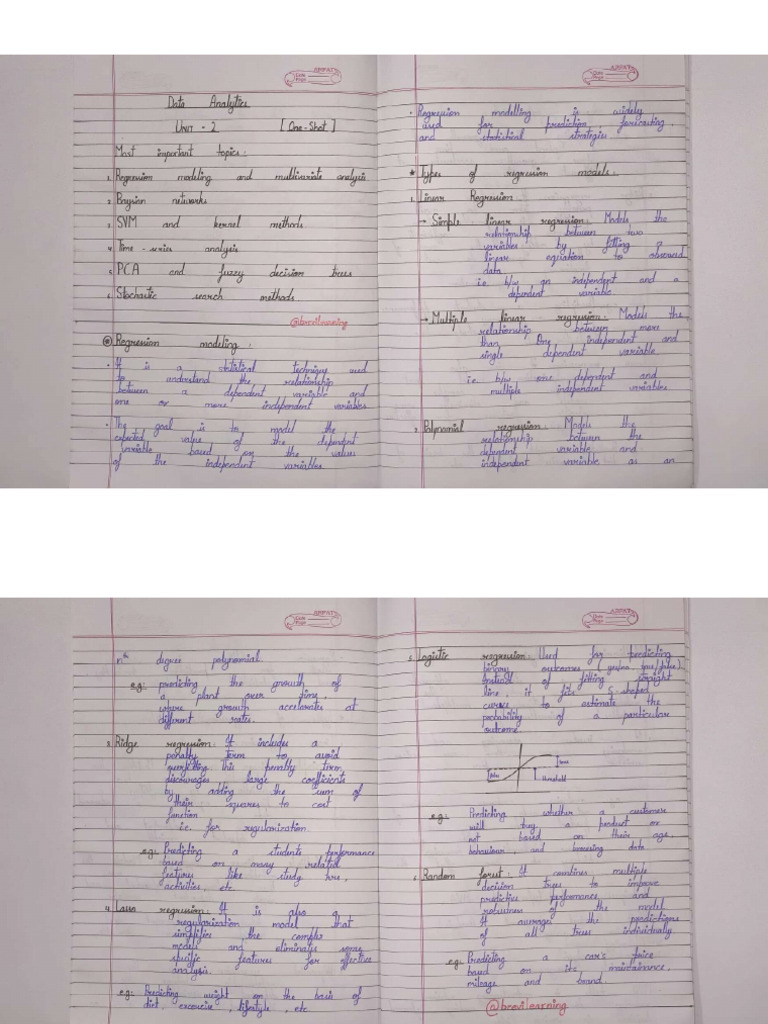 ARPAT
Date
Page
Data Analytics
UNIT - 2 [One-Shot]
Most important topics:
1. Regression modeling and multivariate analysis
2. Baysian networks
3. SVM and kernel methods
4. Time - series analysis
5. PCA and fuzzy decision trees
6. Stochastic search methods
@brevilearning
Regression modeling:
• It is a statistical technique used
to understand the relationship
between a dependent variable and
one or more independent variables
• The goal is to model the
expected value of the dependent
variable based on the values
of the independent variables.
ARPAT
Date
Page
• Regression modelling is widely
used for prediction, forecasting,
and statistical strategies
* Types of regression models:
1. Linear Regression
→ Simple linear regression: Models the
relationship between two
variables by fitting a
linear equation to observed
data
i.e. b/w an independent and a
dependent variable
→ Multiple linear regression: Models the
relationship between more
than one independent and
single dependent variable
i.e. b/w one dependent and
multiple independent variables
2. Polynomial regression: Models the
relationship between the
dependent variable and
independent variable as an
ARPAT
Date
Page
nth degree polynomial.
e.g: predicting the growth of
a plant over time,
where growth accelerates at
different rates.
3. Ridge regression: It includes a
penalty term to avoid
overfitting this penalty term
discourages large coefficients
by adding the sum of
their squares to cost
function
i.e. for regularization.
e.g: Predicting a students performance
based on many related
features like study hrs,
activities, etc
4. Lasso regression: It is also a
regularization model that
simplifies the complex
models and eliminates some
specific features for effective
analysis.
e.g: Predicting weight on the basis of
diet, excercise, lifestyle, etc
ARPAT
Date
Page
5. Logistic regression: Used for predicting
binary outcomes (yes/no, true/false)
Instead of fitting straight
line, it fits S-shaped
curve to estimate the
probability of a particular
outcome.
threshold
e.g: Predicting whether a customer
will buy a product or
not based on their age,
behaviour, and browsing data
6. Random forest: It combines multiple
decision trees to improve
predictive performance and
robustness of the model
It averages the predictions
of all trees individually
e.g: Predicting a car's price
based on its maintainance,
mileage and brand.
@brevilearning